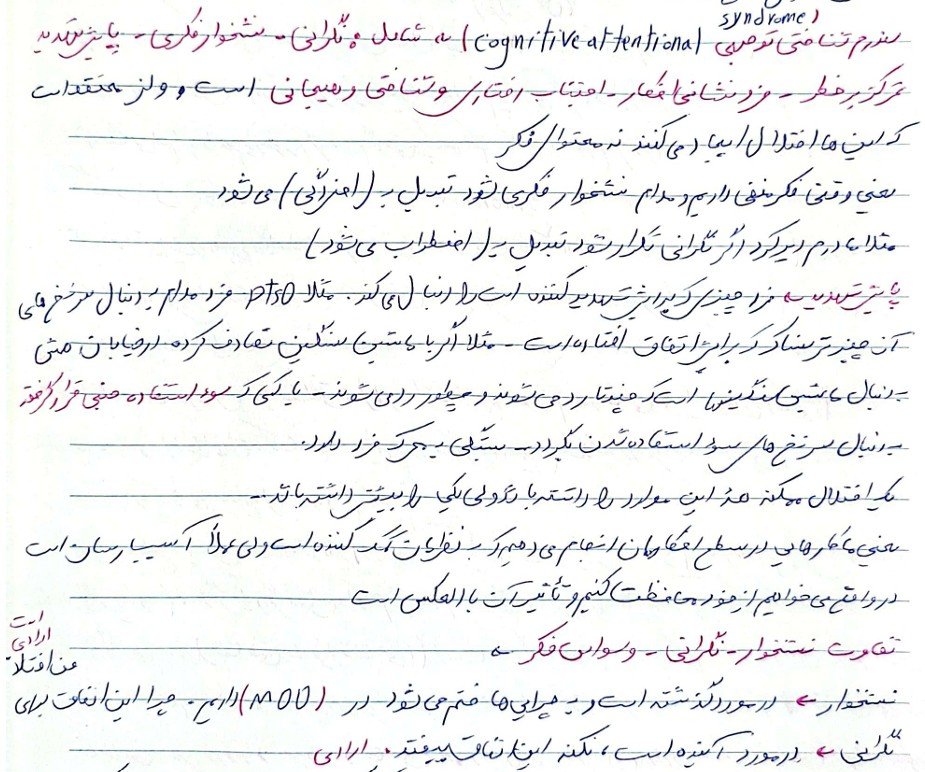 syndrome)
سندرم شناختی توجهی (cognitive attentional) ← شامل: نگرانی - نشخوار فکری - پایش تهدید
تمرکز بر خطر - فرونشانی افکار - اجتناب رفتاری و شناختی و هیجانی است و ولز معتقد است
که این ها اختلال ایجاد می کنند نه محتوای فکر
یعنی وقتی فکر منفی داریم و مدام نشخوار فکری شود تبدیل به (افسردگی) می شود
مثلا مادرم دیر کرد اگر نگرانی تکرار شود تبدیل به (اضطراب می شود)
پایش تهدید ← فرد چیزی که برایش تهدید کننده است را دنبال می کند. مثلا PTSD فرد مدام به دنبال سرنخ های
آن چیز ترسناک که برایش اتفاق افتاده است - مثلا اگر با ماشین سنگین تصادف کرده در خیابان حتی
به دنبال ماشین سنگینها است که چند تا رد می شوند و چطور رد می شوند - یا کسی که سوء استفاده جنسی قرار گرفته
به دنبال سرنخ های سوء استفاده شدن بگردد - بستگی به که فرد دارد.
یک اختلال ممکنه همه این موارد را داشته باشد ولی یکی را بیشتر داشته باشد -
یعنی ما کارهایی در سطح افکارمان انجام می دهیم که به نظرمان کمک کننده است ولی عملاً آسیب رسان است
در واقع می خواهیم از خود محافظت کنیم و تأثیر آن بالعکس است
تفاوت نشخوار - نگرانی - وسواس فکر ←
ارادی
من
نشخوار ← در مورد گذشته است و به چرایی ها ختم می شود در (MDD) داریم. چرا این اتفاق برای
نگرانی ← در مورد آینده است، نکنه این اتفاق بیفتد. ارادی